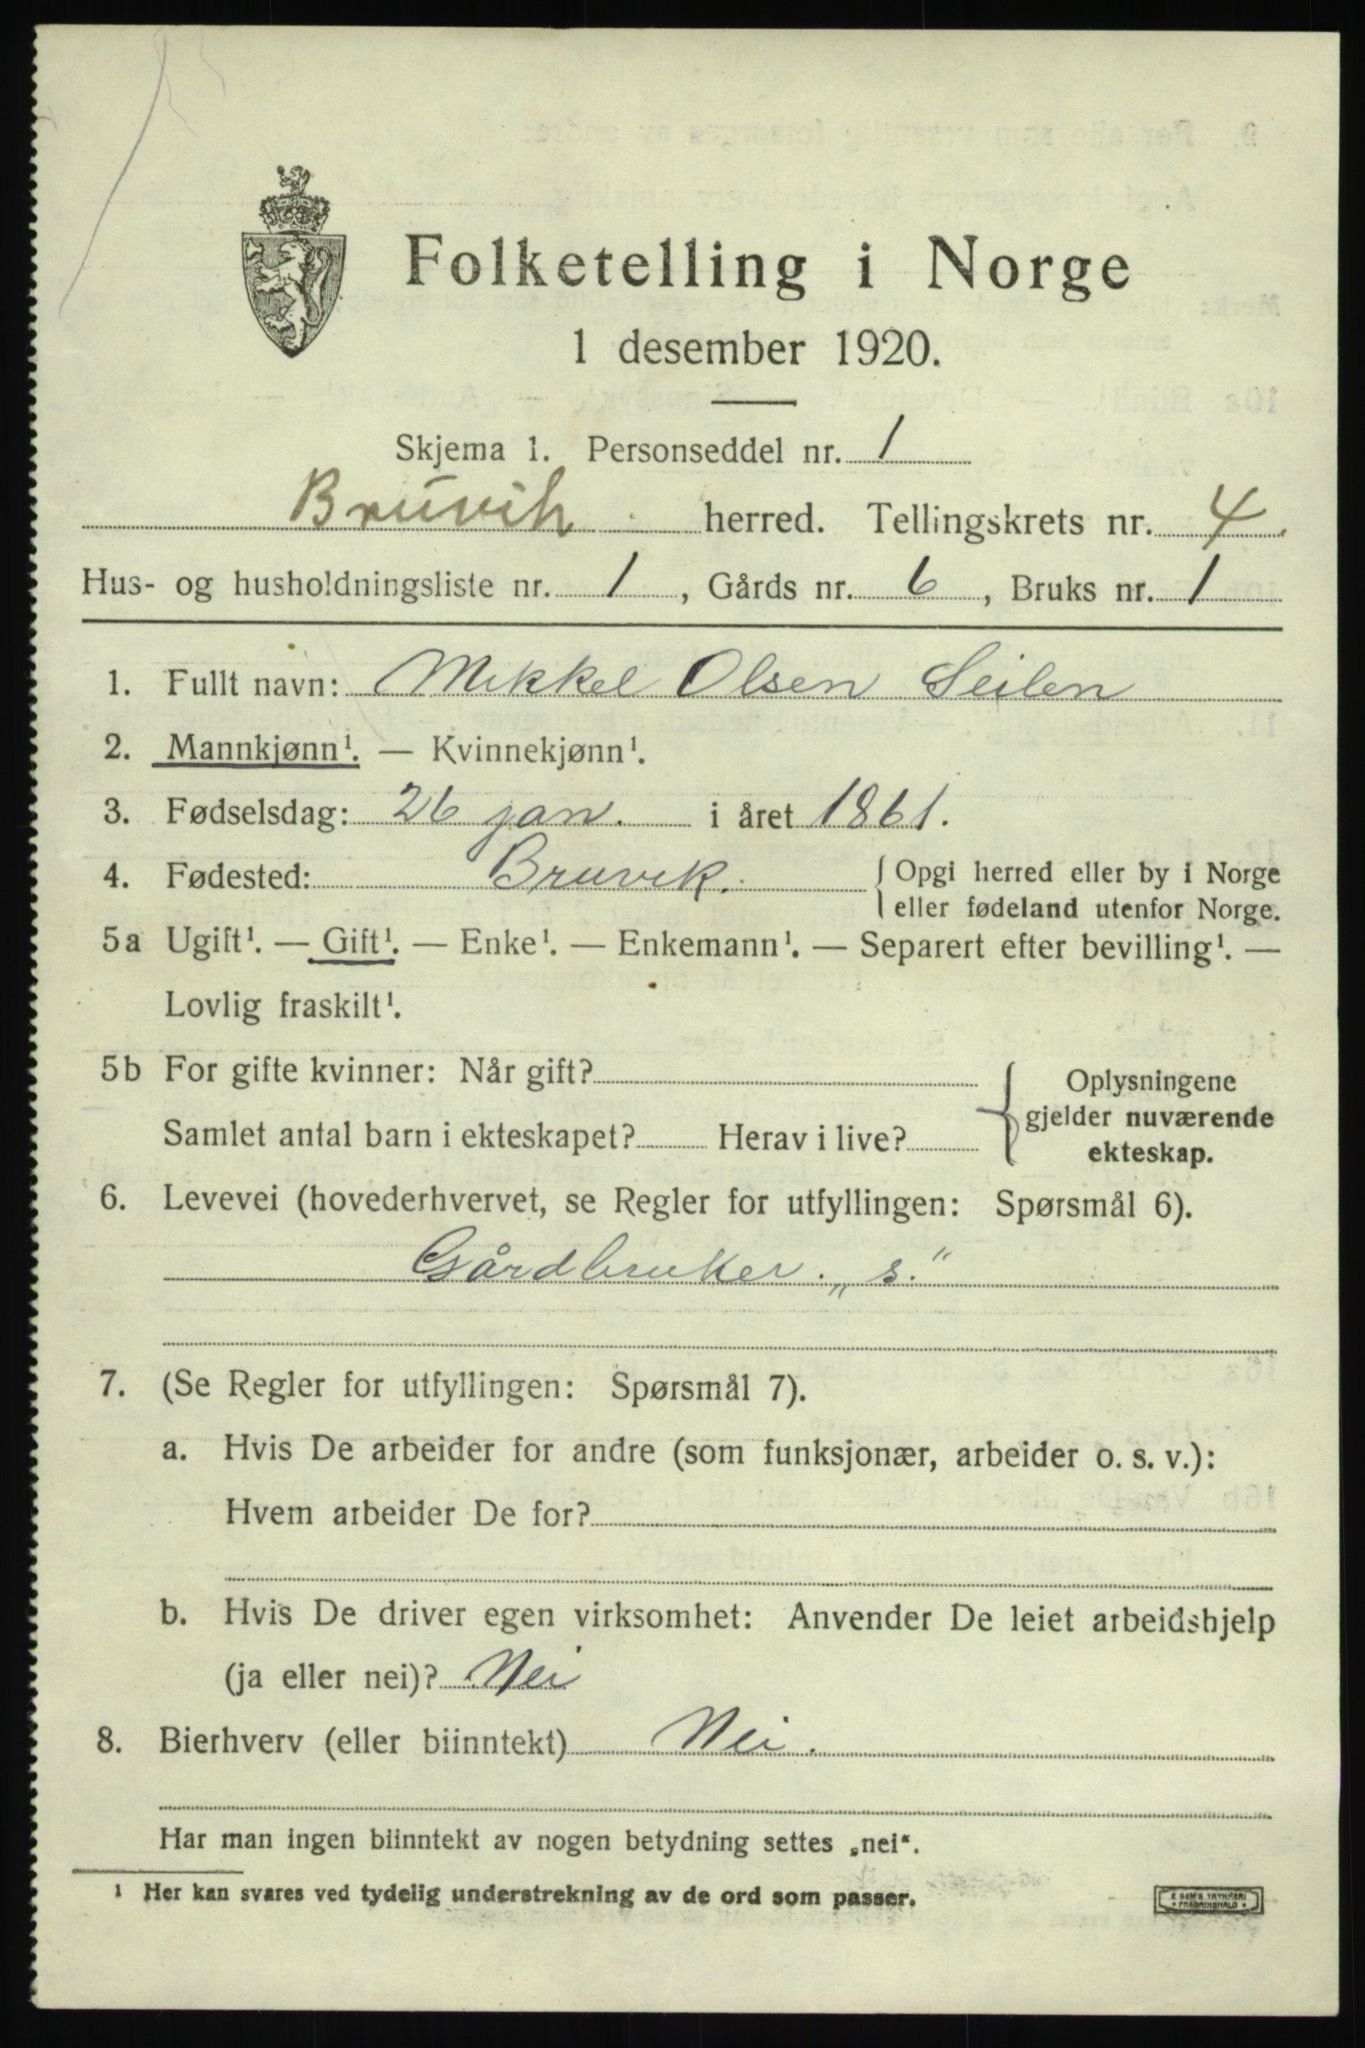 Folketelling i Norge
1 desember 1920.
Skjema 1. Personseddel nr. 1
Bruvik herred. Tellingskrets nr. 4.
Hus- og husholdningsliste nr. 1, Gårds nr. 6, Bruks nr. 1
1. Fullt navn: Mikkel Olsen Seilen
2. Mannkjønn¹. — Kvinnekjønn¹.
3. Fødselsdag: 26 jan. i året 1861.
4. Fødested: Bruvik. { Opgi herred eller by i Norge
eller fødeland utenfor Norge.
5a Ugift¹. — Gift¹. — Enke¹. — Enkemann¹. — Separert efter bevilling¹. —
Lovlig fraskilt¹.
5b For gifte kvinner: Når gift?
Samlet antal barn i ekteskapet? Herav i live?
{ Oplysningene
gjelder nuværende
ekteskap.
6. Levevei (hovederhvervet, se Regler for utfyllingen: Spørsmål 6).
Gårdbruker. „s.“
7. (Se Regler for utfyllingen: Spørsmål 7).
a. Hvis De arbeider for andre (som funksjonær, arbeider o. s. v.):
Hvem arbeider De for?
b. Hvis De driver egen virksomhet: Anvender De leiet arbeidshjelp
(ja eller nei)? Nei
8. Bierhverv (eller biinntekt) Nei.
Har man ingen biinntekt av nogen betydning settes „nei“.
¹ Her kan svares ved tydelig understrekning av de ord som passer.
E SEM'S TRYKKERI
FREDRIKSHALD